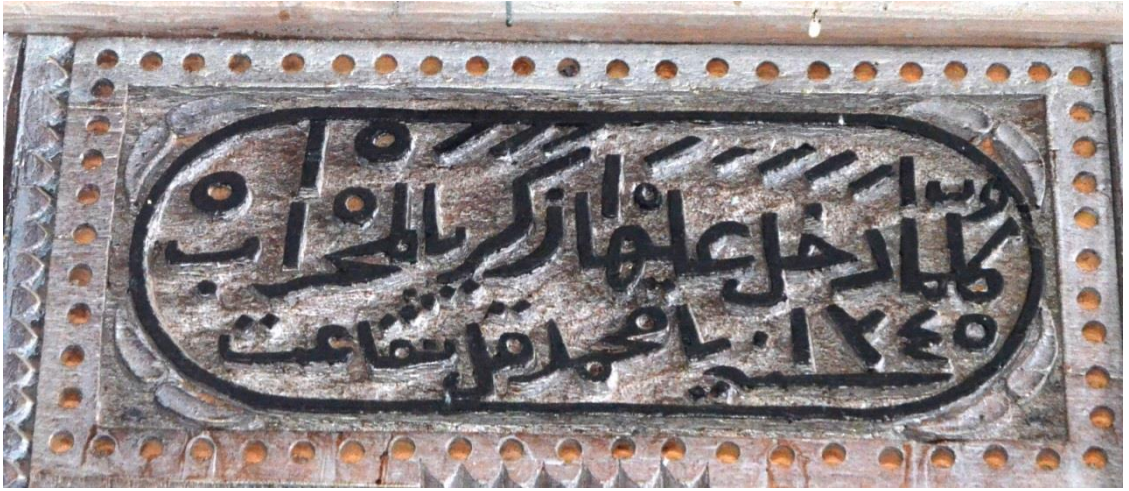 كلما دخل عليها زكريا المحراب
١٢٤٥ يا محمد قل شفاعت